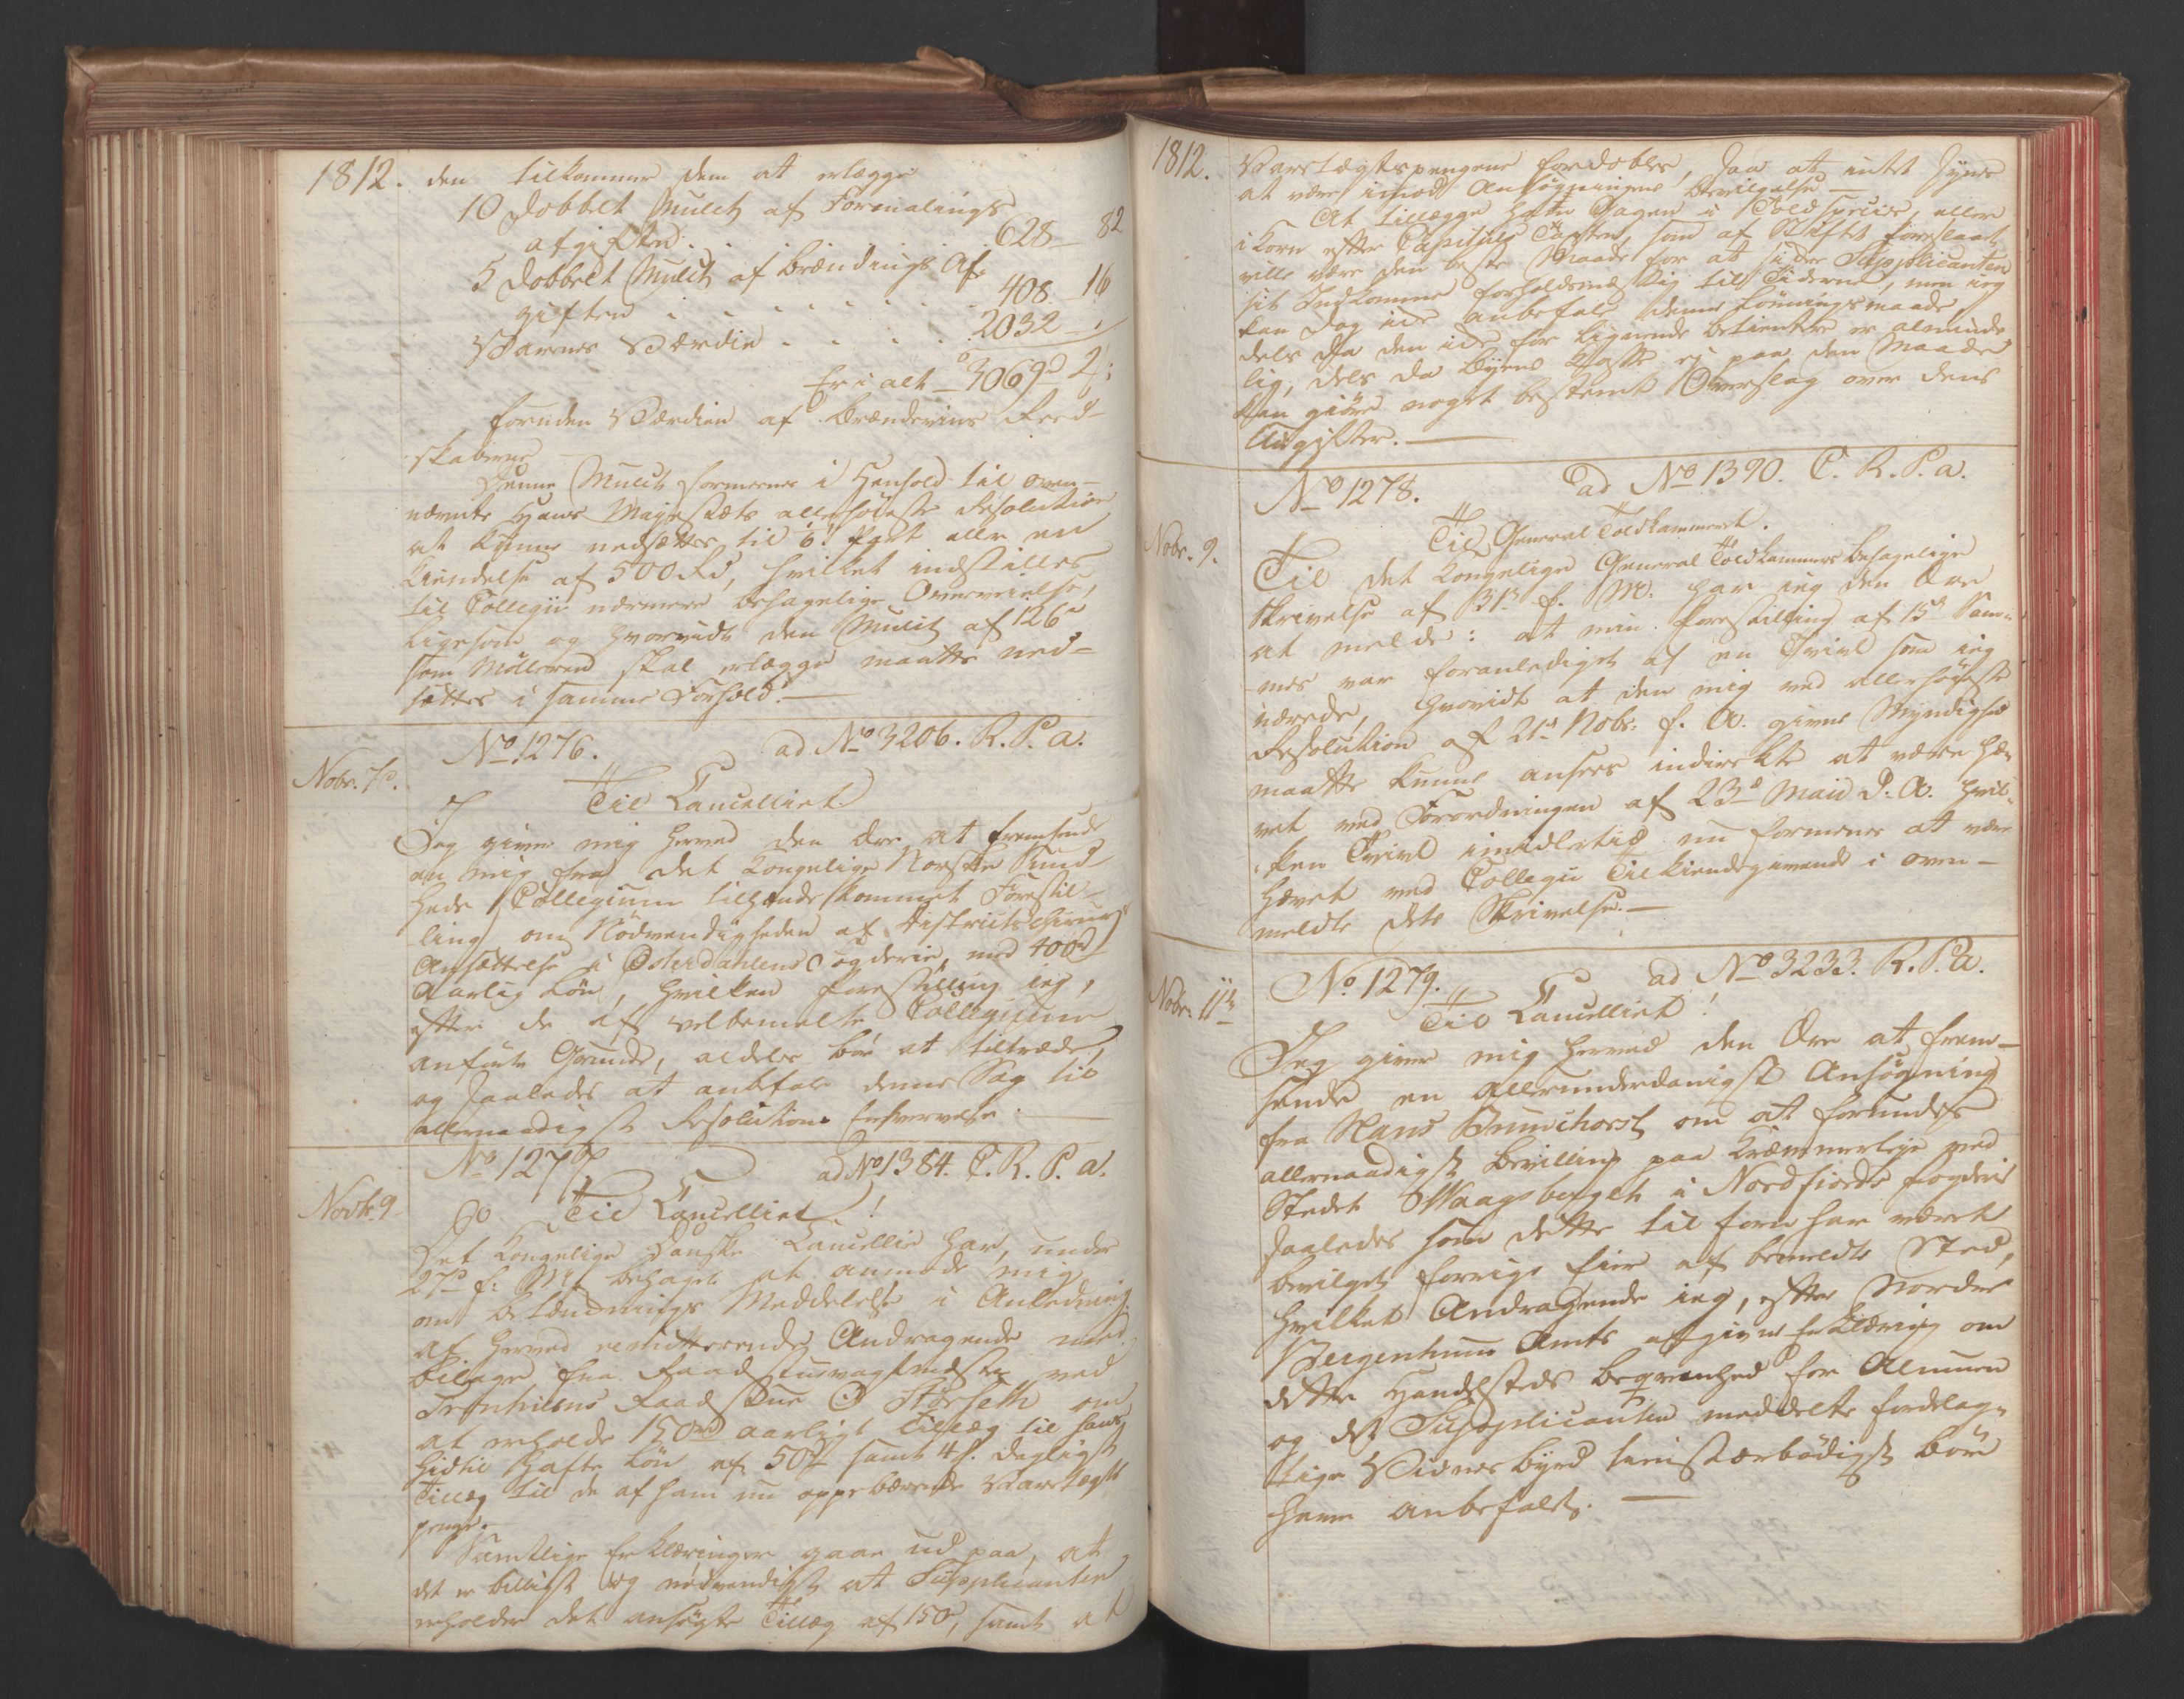 1812. den tilkommer dem at erlægge
10 Dobbelt Mulct af Formalings
afgiften . . . . 628 — 82
5 Dobbelt Mulct af Brændings Af-
giften . . . . . . . 408 — 16
Varenes Værdie . . . . . 2032 —
Er i alt — 3069 rd 2 s:
foruden Værdien af Brændeviins Reed-
skaberne —
Denne Mulct formenes i Henhold til oven-
nævnte Hans Majestæts allerhöieste Resolution
at kunne nedsættes til eller en
Kiendelse af 500 Rd, hvilket indstilles
til Collegii nærmere behagelige Overveielse,
ligesom og hvorvidt den Mulct af 126 rd
som Mölleren skal erlægge maatte ned-
sættes i samme Forhold. —
No 1276. ad No 3206. R. P. a.
Nobr. 7d. Til Cancelliet
Jeg giver mig herved den Ære at fremsende
en mig fra det Kongelige Norske Sund-
heds Collegium tilhændekommet Forestil-
ling om Nödvendigheden af Districtschirurgs
Ansættelse i Österdahlens Fogderie, med 400 rd
Aarlig Lön, hvilken Forestilling ieg,
efter de af velbemeldte Collegium
anförte Grunde, aldeles bör at tiltræde,
og saaledes at anbefale denne Sag til
allernaadigst Resolutions Erhvervelse. —
No 1277 ad No 1384. C. R. P. a.
Novbr. 9 Til Cancelliet!
Det Kongelige Danske Cancellie har, under
27de f: M. behaget at anmode mig
om Betænknings Meddelelse i Anledning
af herved remitterende Andragende med
Bilage fra Raadstuevagtmester ved
Tronhiems Raadstue O Störseth om
at erholde 150 rd aarligt Tillæg til hans
hidtil hafte Lön af 50 rd samt 4 s. dagligt
Tillæg til de af ham nu oppebærende Vartægts
penge.
Samtlige Erklæringer gaae ud paa, at
det er billigt og nödvendigt at Supplicanten
erholder det ansögte Tillæg af 150 rd, samt at
1812. Vartægtspengene fordobles, saa at intet synes
at være imod Ansögningens Bevilgelse —
At tillægge hele Gagen i Sölv Specier, eller
i Korn efter Capituls Taxten, som af Stiftet foreslaaet
ville være den beste Maade for at sikre Supplicanten
sit Indkomme forholdsmæssig til Tiderne, men ieg
kan dog ikke anbefale denne Lönningsmaade
dels da den ikke for lignende Betiente er alminde
lig, dels da Byens Kasse ei paa den Maade
kan giöre noget bestemt Overslag over dens
Udgifter. —
No 1278. ad No 1390. C. R. P. a.
Til General Toldkammeret.
Nobr. 9. Til det Kongelige General Toldkammers behagelige
Skrivelse af 31te f. M. har ieg den Ære
at melde: at min Forestilling af 15d Sam-
mes var foranlediget af en Tvivl som ieg
nærede, hvorvidt at den mig ved allerhöieste
Resolution af 21d Nobr: f. A. givne Myndighed
maatte kunne ansees indirekte at være hæ-
vet ved Forordningen af 23d Maii d. A. hvil-
ken Tvivl imidlertid nu formenes at være
hævet ved Collegii Tilkiendegivende i oven-
meldte dets Skrivelse. —
No. 1279. ad No 3233. R. P. a.
Nobr. 11te Til Cancelliet!
Jeg giver mig herved den Ære at frem-
sende en allerunderdanigst Ansögning
fra Hans Brunchorst om at forundes
allernaadigst Bevilling paa Kræmmerleye ved
Stedet Waagsberget i Nordfiords Fogderi
saaledes som dette til forn har været
bevilget forrige Eier af bemeldte Sted,
hvilket Andragende ieg, efter Nordre
Bergenhuus Amts afgivne Erklæring om
dette Handelsteds beqvemhed for Almuen
og det Supplicanten meddelte fordelag-
tige Vidnesbyrd tienstærbödigst bör
have anbefalet. —